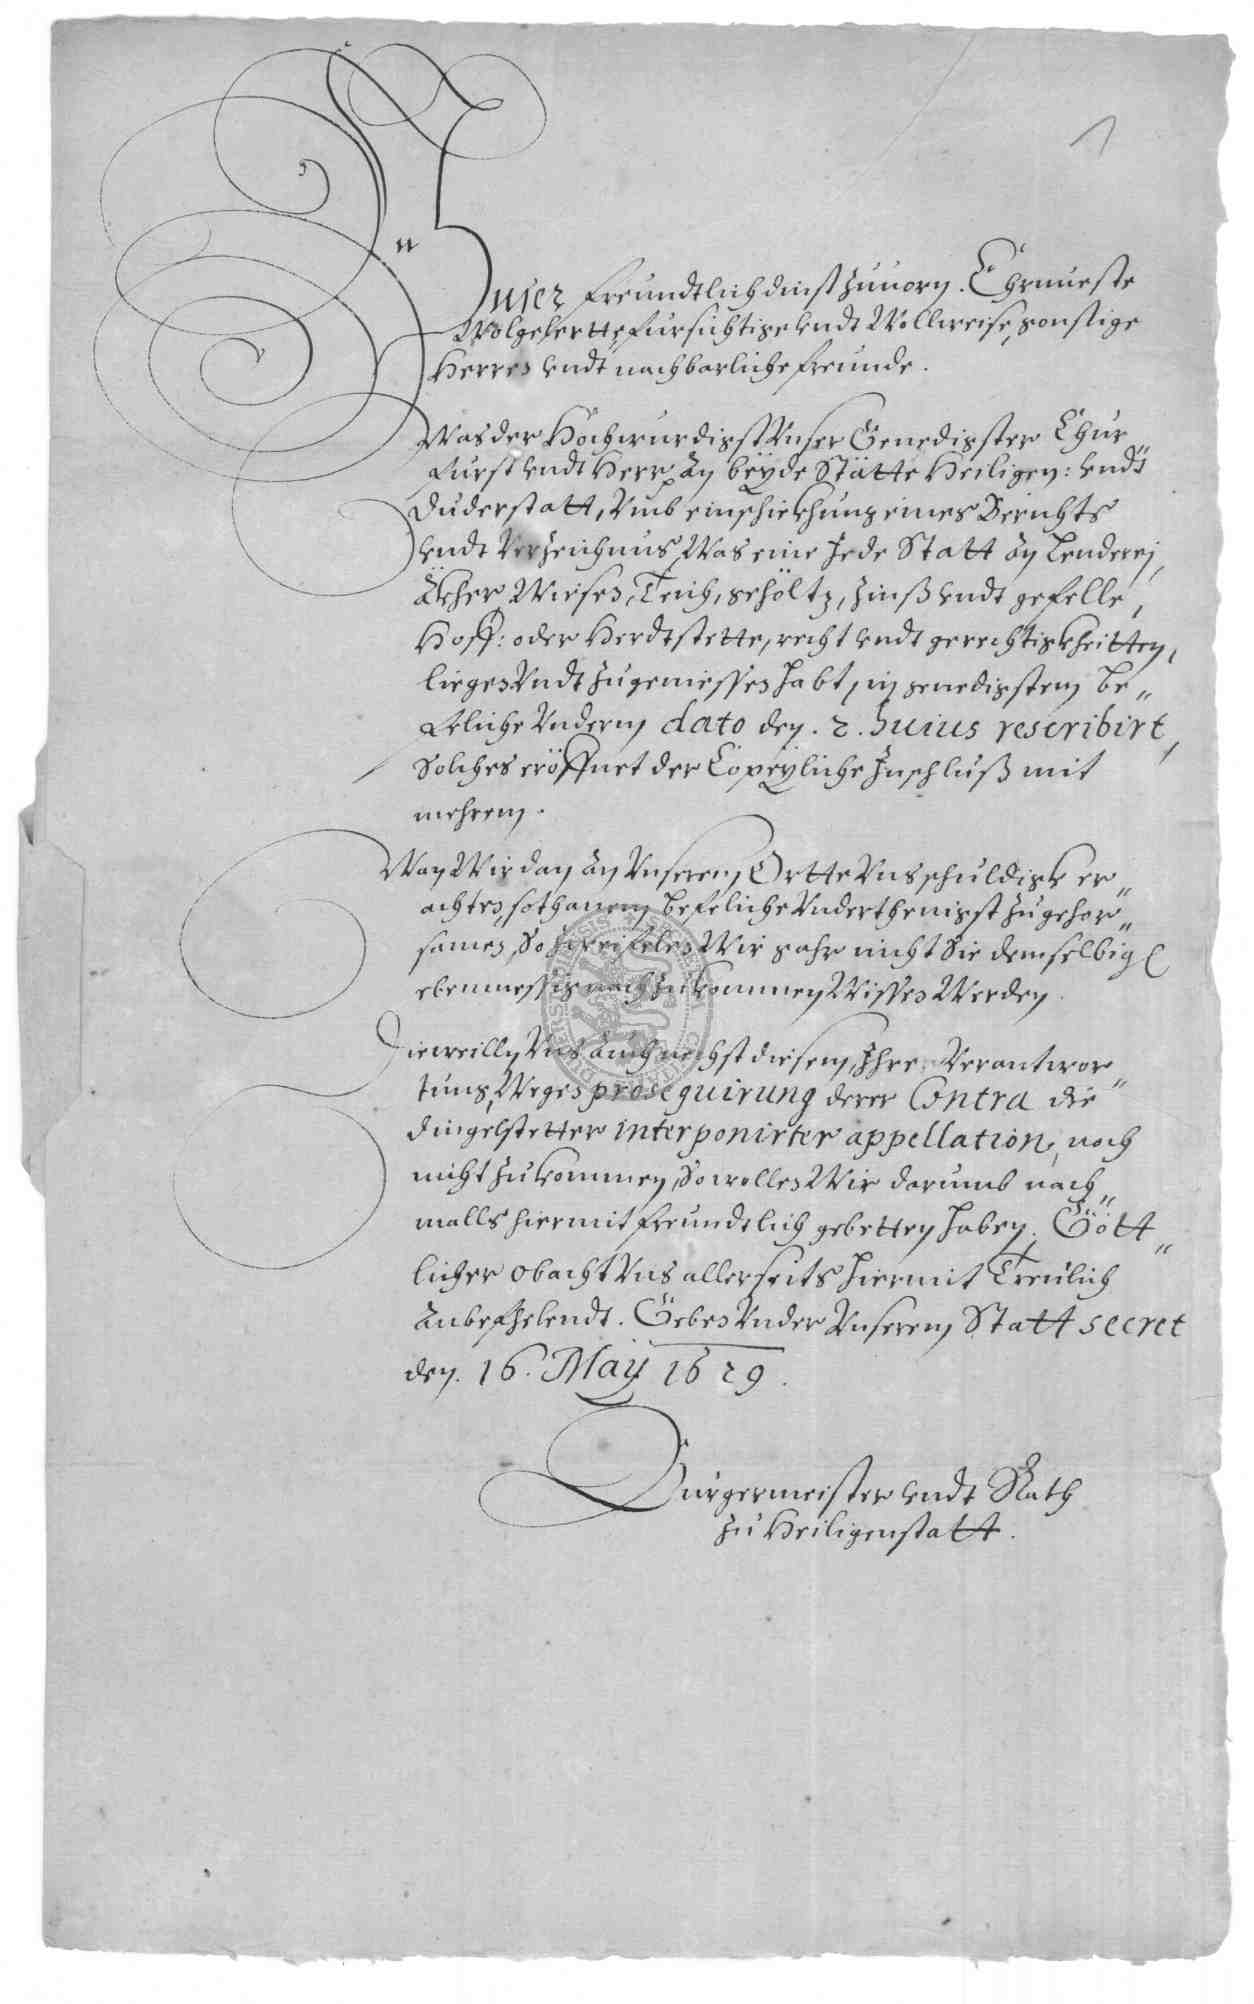 1
Unser freundtlich dinst zuuorn. Ehrnueste
Wolgelertte, fursichtige undt Wollweise, gonstige
Herren undt nachbarliche freunde.
Was der Hochwurdigst Unser Genedigster Chur„
furst undt Herr, An beÿde Stätte Heiligen: undt
Duderstatt, Umb einschickhung eines Berichts
undt Verzeichnus, Was eine Jede Statt An Lenderej,
Äcker Wiesen, Teich, gehöltz, Zinß undt gefelle,
Hoff: oder Herdtstette, recht undt gerechtigkheitten,
liegen Undt zugeniessen habt, in genedigstem be„
feliche Underm dato den. 2. huius rescribirt,
Solches eröffnet der Copeÿliche Inschluß mit
mehrem.
Wan Wir dan An Unserem Ortte Uns schuldigk er„
achten, sothanem befeliche Underthenigst zugehor„
samen, So zweifelen Wir gahr nicht Sie demselbigen
ebenmessig nachzukommen Wissen Werden.
Dieweilln Uns Auch nechst diesem, Ihre Verantwor„
tung, Wegen prosequirung derer Contra die
Dingelstetter interponirter appellation, noch
nicht zukommen, So wollen Wir darumb noch„
malls hiermit freundtlich gebetten haben. Gött„
licher obacht Uns allerseits hiermit Treulich
Anbefhelendt. Geben Under Unserem Statt secret
den. 16. Maÿ 1629.
Burgermeister undt Rath
zu Heiligenstatt.